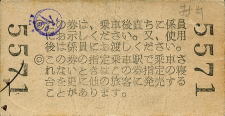 5571
この券は、乗車後直ちに係員
にお示しください。又、使用
後は係員にお渡しください。
◎この券の指定乗車駅で乗車さ
れないときはこの券指定の寝
台を更に他の旅客に発売する
ことがあります。
5571